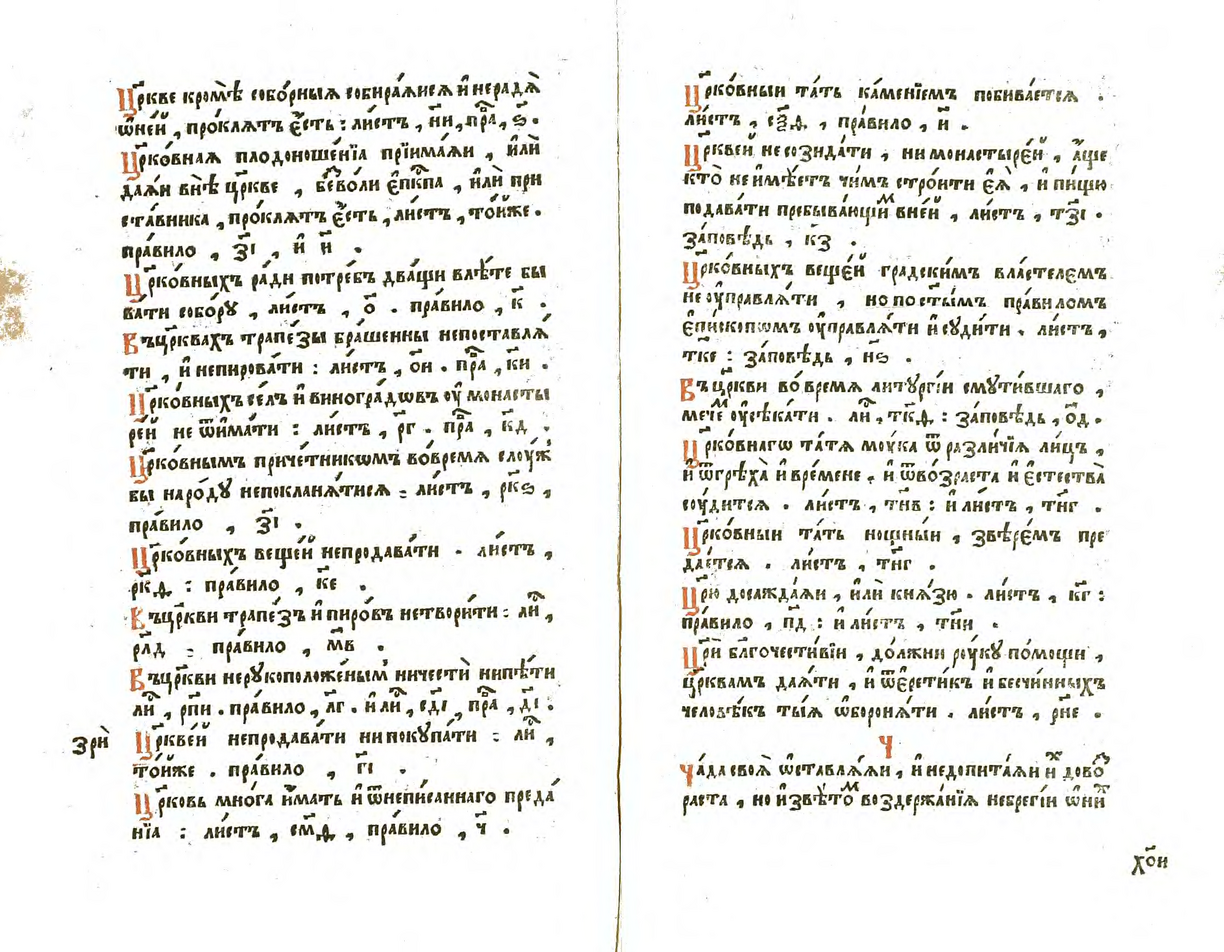 Цр҃кве кромѣ̀ собо́рныѧ собира́ѧисѧ и҆ нерадѧ̀
ѡ҆не́й , про́клѧтъ є҆́сть : ли́стъ , н҃и , пра̑ , ѕ҃ .
Цр҃ко́внаѧ плодоноше́нїа прїима́ѧи , и҆лѝ
даѧ́и внѣ̀ цр҃кве , безво́ли є҆пкⷭ҇па , и҆лѝ при
ста́вника , про́клѧтъ є҆́сть , ли́стъ , то́йже .
пра́вило , з҃і , и҆ и҃ .
Цр҃ко́вныхъ ра́ди потре́бъ два́щи влѣ́те бы
ва́ти собо́рꙋ , ли́стъ , о҃ . пра́вило , к҃ .
Въцр҃квахъ трапе́зы бра́шенны непоставлѧ́
ти , и҆ непирова́ти : ли́стъ , о҃и . пра̑ , к҃и .
Цр҃ко́вныхъ се́лъ и҆ виногра́дѡвъ оу҆ монасты
ре́й не ѿима́ти : ли́стъ , р҃г . пра̑ , к҃д .
Цр҃ко́внымъ приче́тникѡмъ во́времѧ слоу́ж
бы наро́дꙋ непоклана́тисѧ : ли́стъ , рк҃ѕ ,
пра́вило , з҃і .
Цр҃ко́вныхъ веще́й непродава́ти . ли́стъ ,
рк҃д : пра́вило , к҃е .
Въцр҃кви трапе́зъ и҆ пиро́въ нетвори́ти : ли̑ ,
рл҃д : пра́вило , м҃в .
Въцр҃кви нерꙋкоположе́ным̾ ничестѝ нипѣ́ти
ли̑ , рп҃и . пра́вило , л҃г . и҆ ли̑ , сд҃і , пра̑ , д҃і .
зрѝ
Цр҃кве́й непродава́ти нипокꙋпа́ти : ли̑ ,
то́йже . пра́вило , г҃і .
Цр҃ковь мно́га и҆́мать и҆ ѿнепи́саннаго преда́
нїа : ли́стъ , см҃д , пра́вило , ч҃ .
Цр҃ко́вныи та́ть ка́менїемъ побива́етсѧ .
ли́стъ , сѯ҃д , пра́вило , и҃ .
Цр҃кве́й несозида́ти , нимонастыре́й , а҆́ще
кто̀ не и҆мѣ́етъ чи́мъ стро́ити є҆ѧ̀ , и҆ пи́щю
подава́ти пребыва́ющиⷨ вне́й , ли́стъ , тз҃і .
за́повѣдь , к҃з .
Цр҃ко́вныхъ веще́й градски́мъ власте́лемъ
не оу҆правлѧ́ти , но по ст҃ы́мъ пра́виломъ
є҆пи́скопѡмъ оу҆правлѧ́ти и҆ сꙋди́ти . ли́стъ ,
тк҃е : за́повѣдь , н҃ѕ .
Въ цр҃кви во́ времѧ литꙋргі́и смꙋти́вшаго ,
мече́ⷨ оу҆сѣка́ти . ли̑ , тк҃д : за́повѣдь , о҃д .
Цр҃ко́внагѡ та́тѧ моу́ка ѿ разли́чїѧ ли́цъ ,
и҆ ѿгрѣха̀ и҆ вре́мене . и҆ ѿво́зраста и҆ є҆стества̀
соу́дитсѧ . ли́стъ , тн҃в : и҆ ли́стъ , тн҃г .
Цр҃ко́вныи та́ть нощны́и , звѣре́мъ пре
дае́тсѧ . ли́стъ , тн҃г .
Цр҃ю досажда́ѧи , и҆лѝ кнѧ́зю . ли́стъ , к҃г :
пра́вило , п҃д : и҆ ли́стъ , тн҃и .
Цр҃и бл҃гочести́вїи , до́лжни рꙋ́кꙋ по́мощи ,
цр҃квамъ даѧ́ти , и҆ ѿє҆рети́къ и҆ бесчи́нныхъ
человѣ́къ ты́ѧ ѡ҆бороня́ти . ли́стъ , рн҃е .
Ч
Ча́да своѧ̀ ѡ҆ставлѧ́ѧи , и҆ недопита́ѧи и҆́х дово́ⷥ
раста , но и҆звѣ́тоⷨ воздержа́нїѧ небрегі́и ѡ҆ни́ⷯ
хо҃и